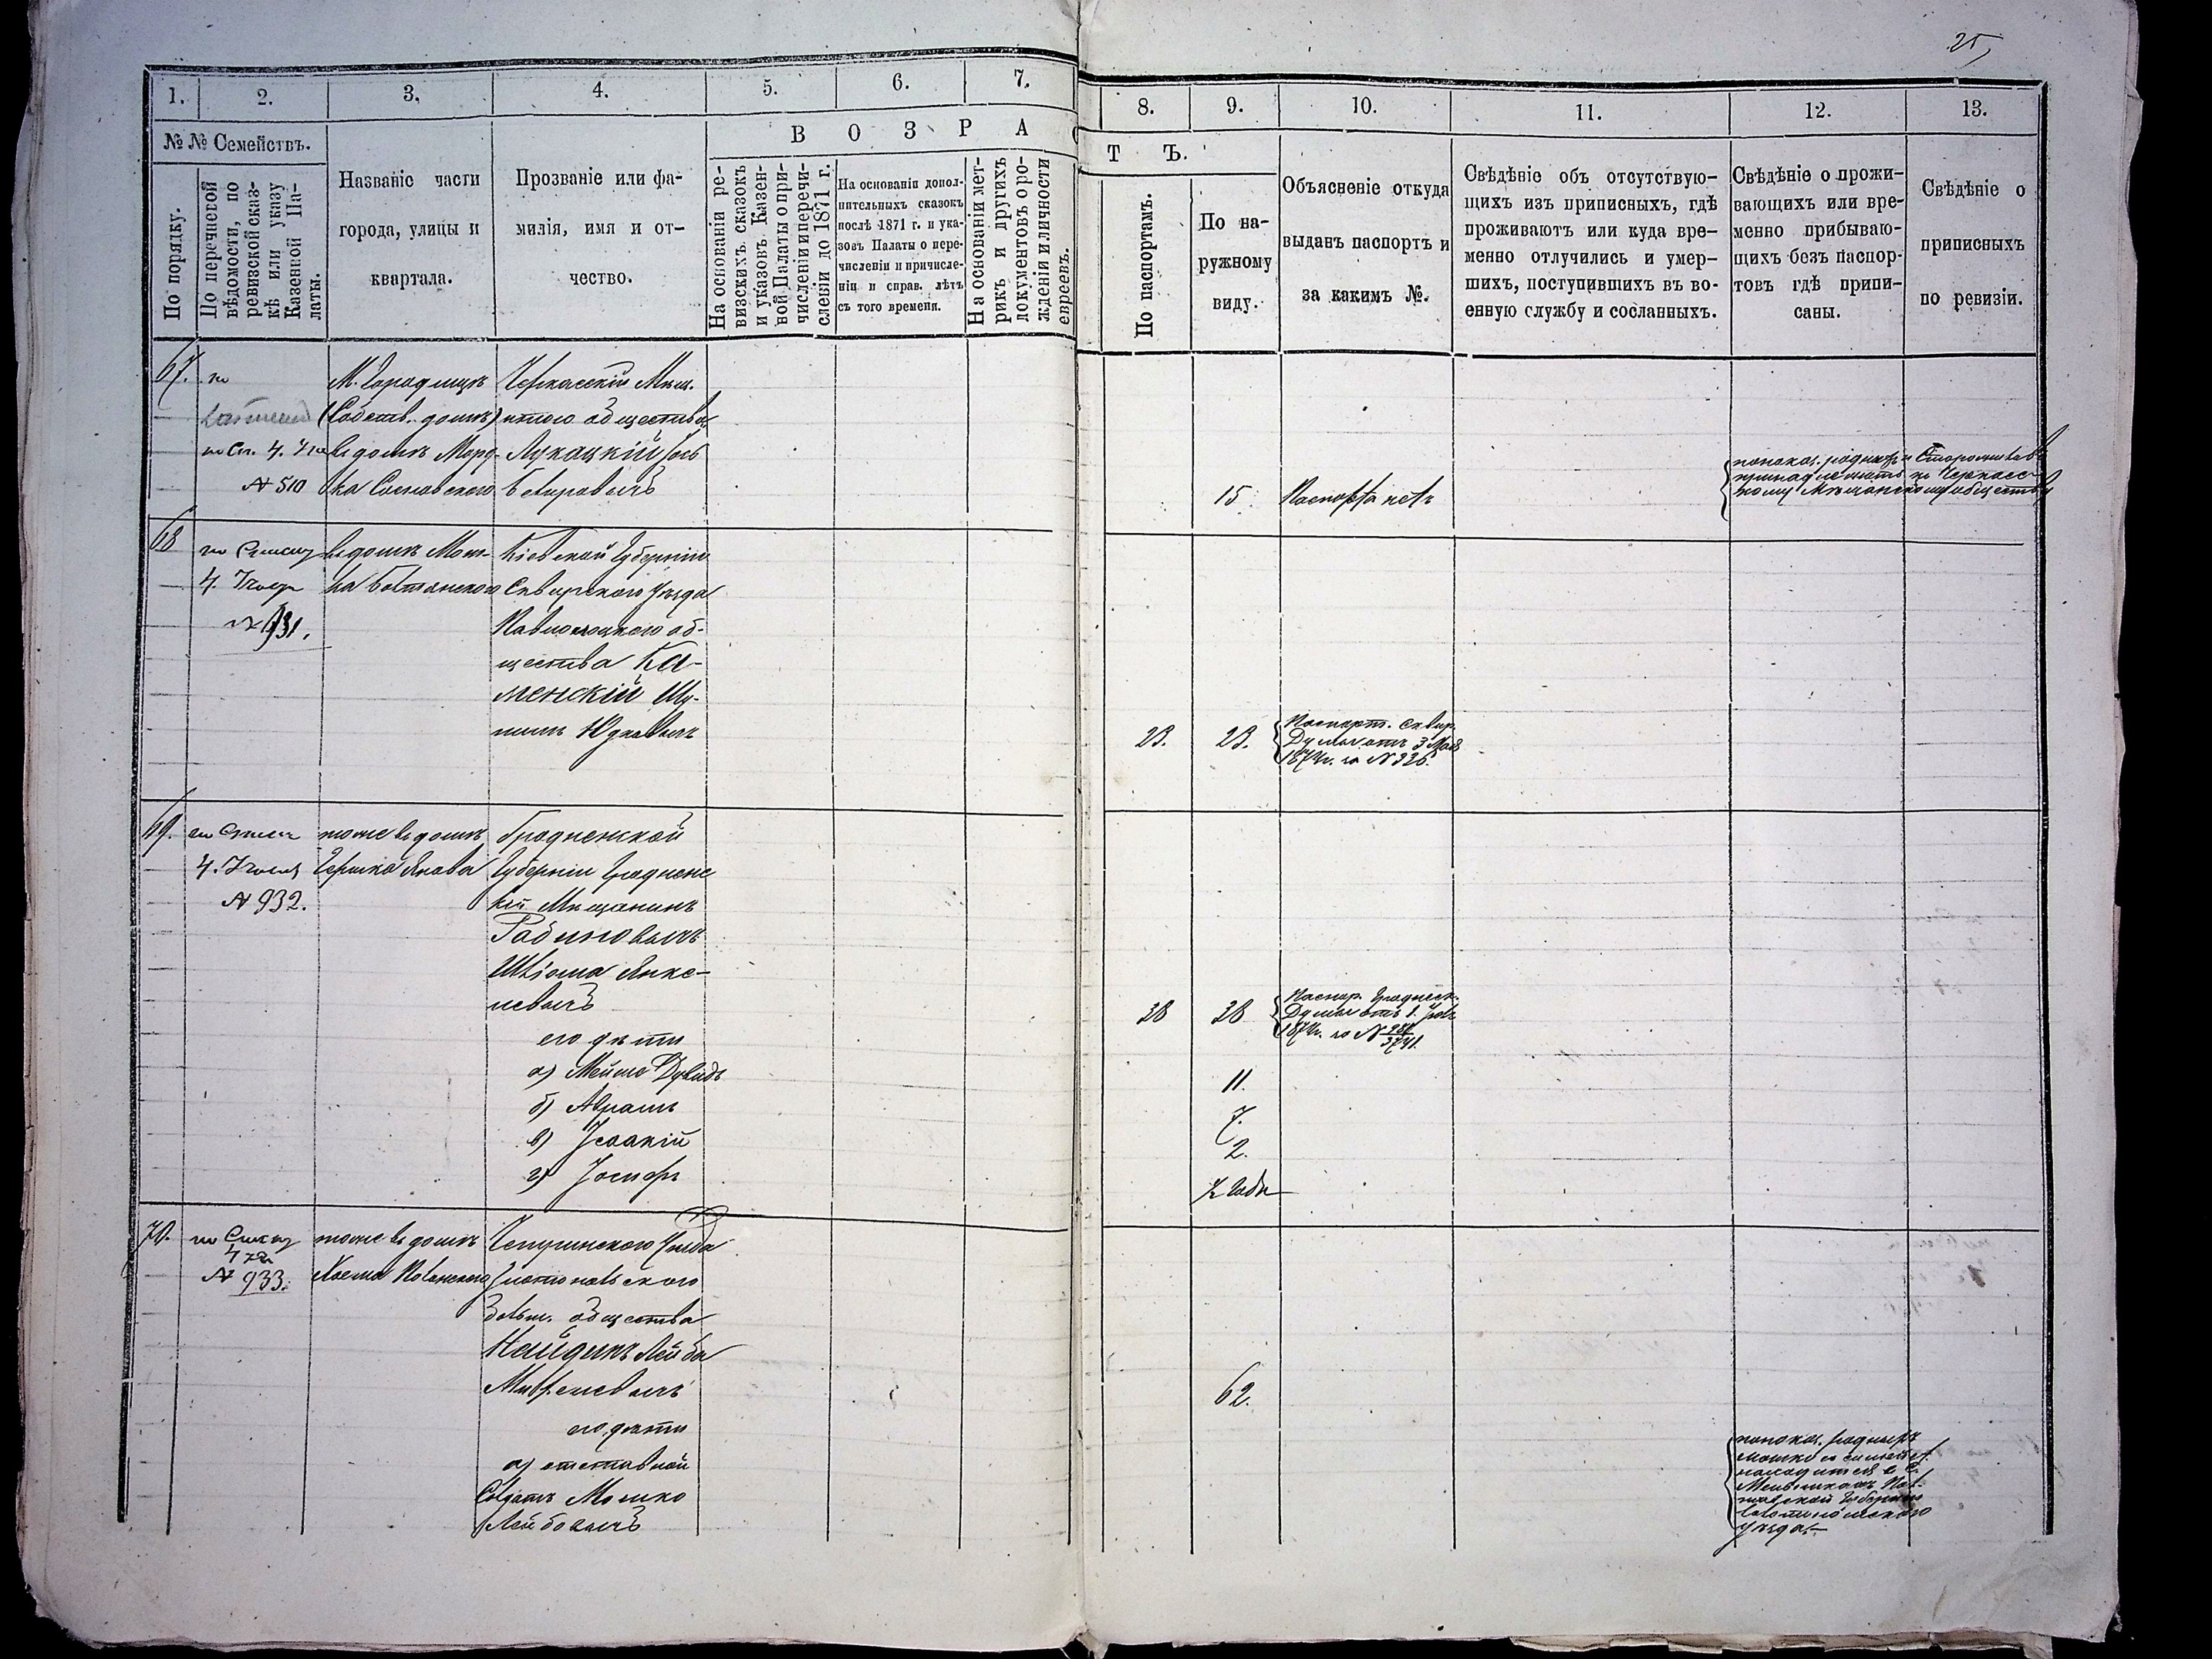 25
1.
2.
3.
4.
5.
6.
7.
8.
9.
10.
11.
12.
13.
№№ Семействъ.
По порядку.
По перечневой
вѣдомости, по
ревизской сказ-
кѣ или указу
Казенной Па-
латы.
Названіе части
города, улицы и
квартала.
Прозваніе или фа-
милія, имя и от-
чество.
В О З Р А С
Т Ъ.
На основаніи ре-
визскихъ сказокъ
и указовъ Казен-
ной Палаты о при-
численіи и перечи-
сленіи до 1871 г.
На основаніи допол-
нительныхъ сказокъ
послѣ 1871 г. и ука-
зовъ Палаты о пере-
численіи и причисле-
ніи и справ. лѣтъ
съ того времени.
На основаніи мет-
рикъ и другихъ
документовъ о ро-
жденіи и личности
евреевъ.
По паспортамъ.
По на-
ружному
виду.
Объясненіе откуда
выданъ паспортъ и
за какимъ №.
Свѣдѣніе объ отсутствую-
щихъ изъ приписныхъ, гдѣ
проживаютъ или куда вре-
менно отлучились и умер-
шихъ, поступившихъ въ во-
енную службу и сосланныхъ.
Свѣдѣніе о прожи-
вающихъ или вре-
менно прибываю-
щихъ безъ паспор-
товъ гдѣ припи-
саны.
Свѣдѣніе о
приписныхъ
по ревизіи.
67.
по
по Сп. 4. Уча
№ 510
М. Городищъ
(Собств. домъ)
въ домѣ Морд-
ка Сосновского
Черкасскій Мѣщ.
нтого общества
Лукацкій Іось
Беѣровичъ
15
Паспорта нетъ
показ. родныхъ и Старошъ
принадлежитъ къ Черкасс-
кому Мѣщанскому обществу
68
по Списку
4. Участ
№ 931.
въ домѣ Мош-
ка Балтанского
Кіевской Губерніи
Сквирского уѣзда
Паволоцкого об-
щества Ка-
менскій Шу-
лимъ Юдковичъ
23.
23.
Паспорт. Сквир.
Думы отъ 3 Мая
1874 г. за № 326.
69.
по Списк
4. Участ
№ 932.
тоже въ домѣ
Гершка Янова
Гродненской
Губерніи Гроднене
кій Мѣщанинъ
Рабиновичъ
Шліома Янке-
левичъ
его дѣти
а) Мейшо Дувидъ
б) Аврамъ
в) Ісаакій
г) Іосифъ
38
38
Паспор. Гродненск.
Думы отъ 1.
1874 г. за №
3741.
11.
7.
2.
½ года
70.
по Списку
4 уча
№ 933.
тоже въ домѣ
Чегиринского уѣзда
Златопольского
общества
Найдичъ Лейба
его дѣти
а) отставной
Солдатъ Мошко
Лейбовичъ
62.
показ. родныхъ
Мошко съ семейст.
находится в с.
Мельникахъ Пол-
тавской Губерніи
Золотоношского
уѣзда.